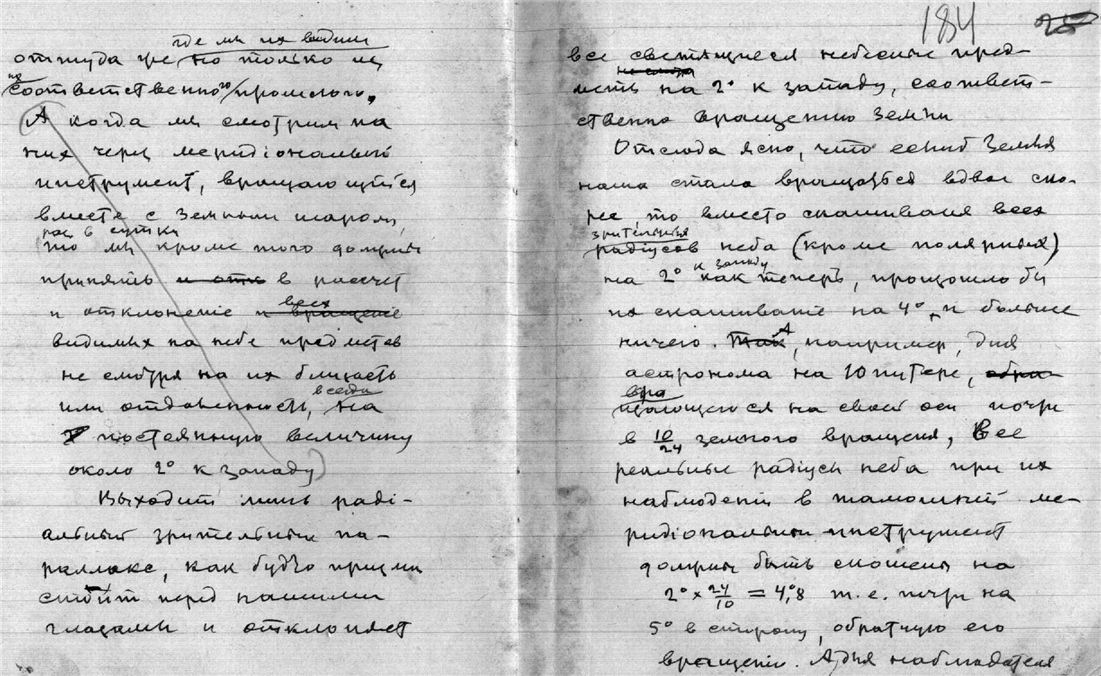 где мы их видим
оттуда же, но только из
из
соответственного прошлого.
А когда мы смотрим на
них через меридіональный
инструмент, вращающийся
вместе с земным шаром,
раз в сутки
то мы кроме того должны
принять и отк в рассчет
всех
и отклоненіе и вращеніе
видимых на небе предметов
не смотря на их близость
всегда
или отдаленность, на
постоянную величину
около 2° к западу)
Выходит лишь раді-
альный зрительный па-
раллакс, как будто призма
стоит перед нашими
глазами и отклоняет
184 25
все светящиеся небесные пред-
меты на 2° к западу, соответ-
ственно вращению Земли
Отсюда ясно, что если б Земля
наша стала вращаться вдвое ско-
рее, то вместо скашиванія всех
зрительных
радіусов неба (кроме полярных)
к западу
на 2° как теперь, произошло бы
их скашиваніе на 4°, и больше
ничего. Так, А, например, для
астронома на Юпитере,
вра
щающегося на своей оси почти
в 10/24 земного вращенія, Все
реальные радіусы неба при их
наблюденіи в тамошний ме-
ридіональный инструмент
должны быть скошены на
2° × 24/10 = 4,°8 т.е. почти на
5° в сторону, обратную его
вращенію. А для наблюдателя